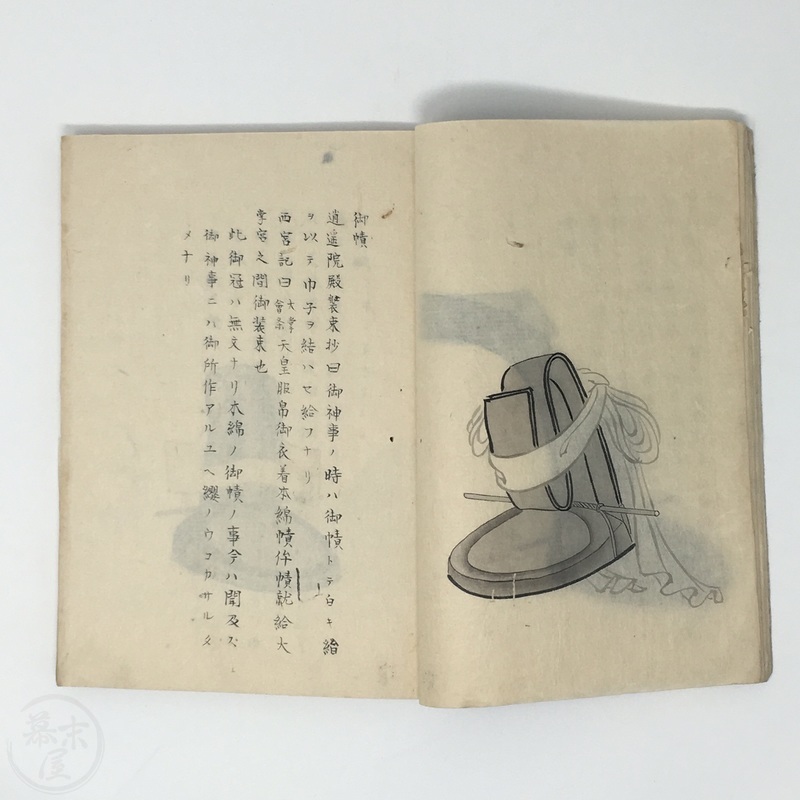 御幘
逍遥院殿装束抄曰御神事ノ時ハ御幘トテ白キ絹
ヲ以テ巾子ヲ結ハセ給フナリ
西宮記曰大甞會条天皇服帛御衣着木綿幘件幘就給大
甞宮之間御装束也
此御冠ハ無文ナリ木綿ノ御幘ノ事今ハ聞及ハズ
御神事ニハ御所作アルユヘ纓ノウコカサルタ
メナリ
幕末屋